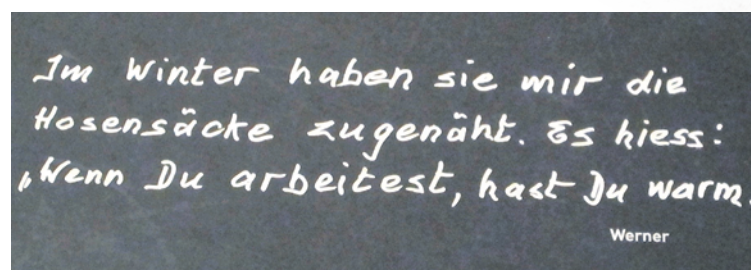 Im Winter haben sie mir die
Hosensäcke zugenäht. Es hiess:
„Wenn Du arbeitest, hast Du warm.
Werner